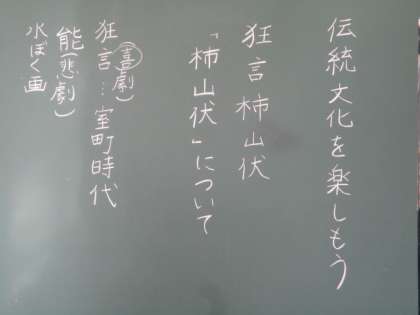 伝統文化を楽しもう
狂言柿山伏
「柿山伏」について
狂言…室町時代
(喜劇)
能(悲劇)
水ぼく画